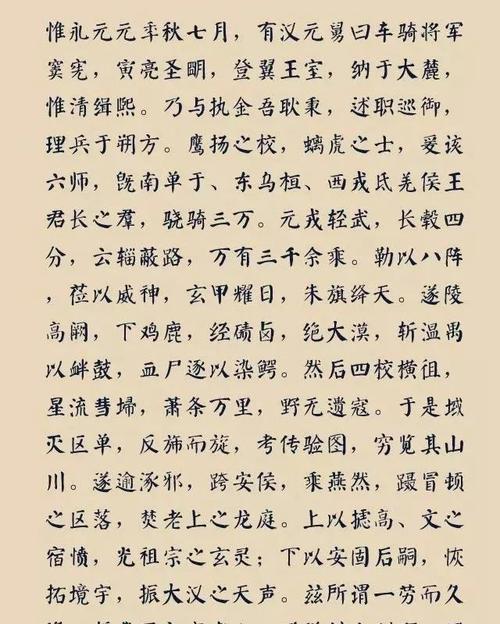 惟永元元年秋七月，有汉元舅曰车骑将军
窦宪，寅亮圣明，登翼王室，纳于大麓，
惟清缉熙。乃与执金吾耿秉，述职巡御，
理兵于朔方。鹰扬之校，螭虎之士，爰该
六师，既南单于、东乌桓、西戎氐羌侯王
君长之群，骁骑三万。元戎轻武，长毂四
分，云辎蔽路，万有三千余乘。勒以八阵
，莅以威神，玄甲耀日，朱旗绛天。遂陵
高阙，下鸡鹿，经碛卤，绝大漠，斩温禺
以衅鼓，血尸逐以染鳄。然后四校横徂，
星流彗埽，萧条万里，野无遗寇。于是域
灭区单，反旆而旋，考传验图，穷览其山
川。遂逾涿邪，跨安侯，乘燕然，蹑冒顿
之区落，焚老上之龙庭。上以摅高、文之
宿愤，光祖宗之玄灵；下以安固后嗣，恢
拓境宇，振大汉之天声。兹所谓一劳而久